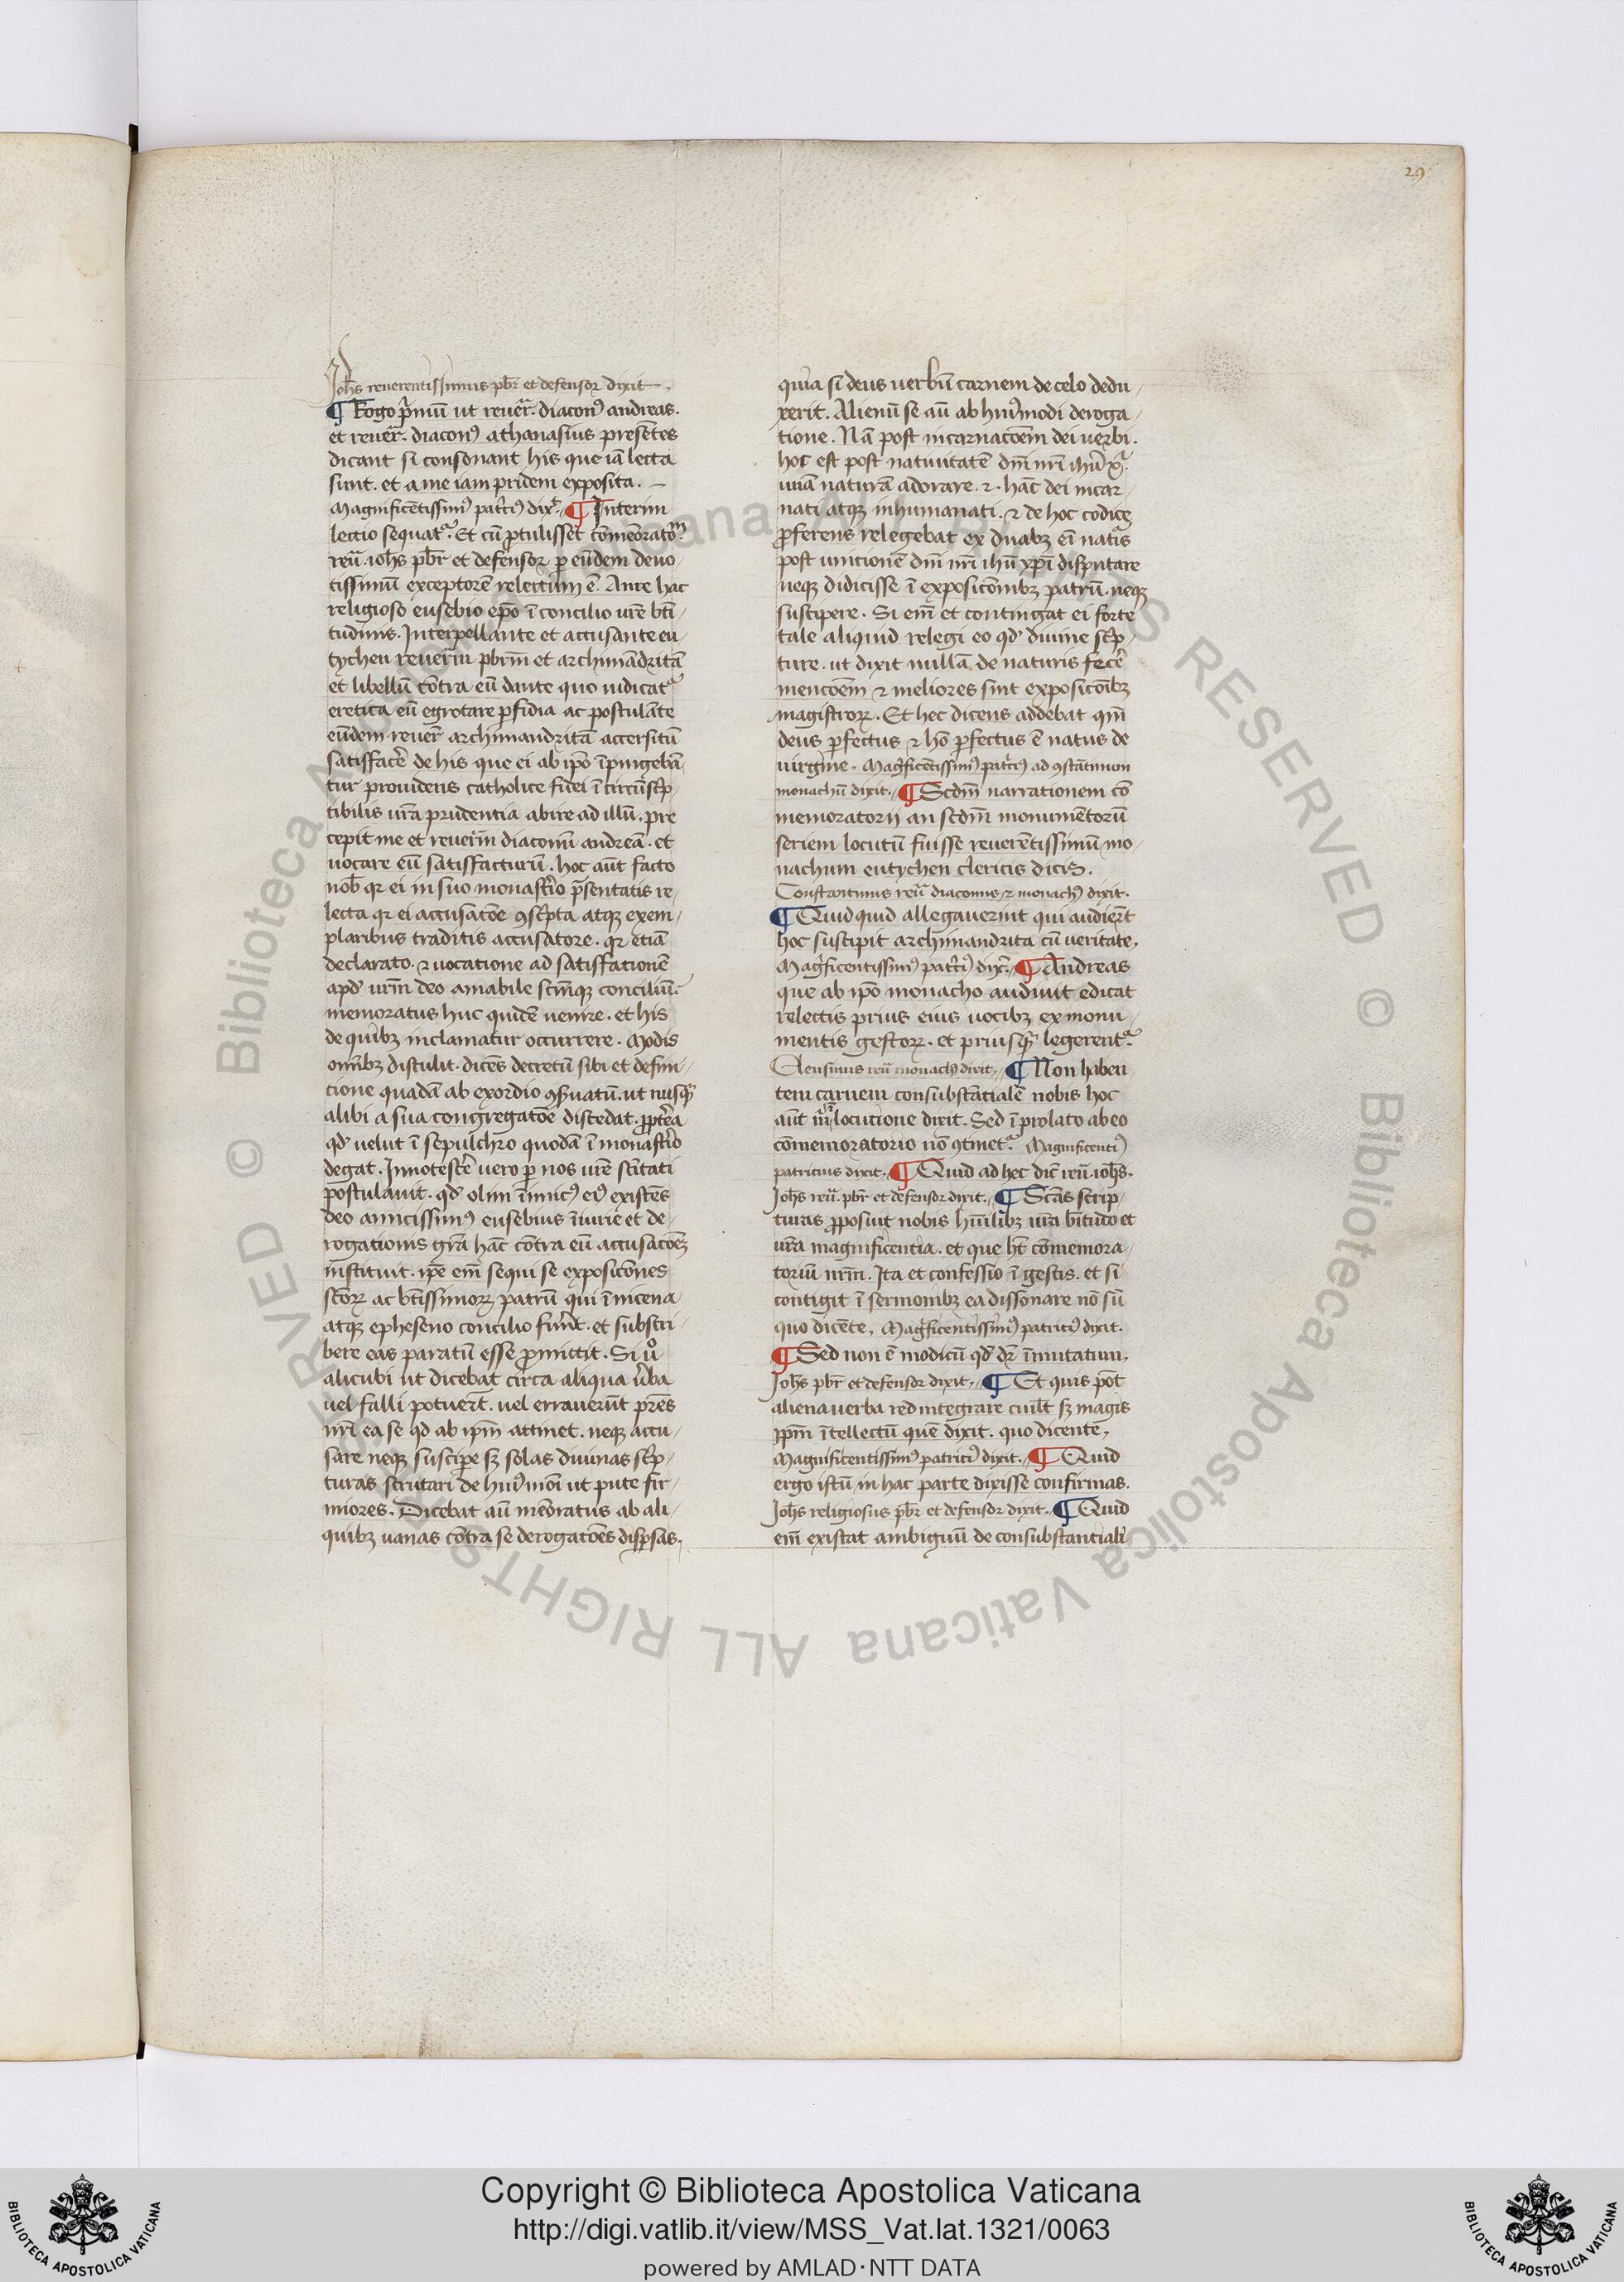 29
Joh̅s reuerentissimus pb̅r et defensor dixit.
¶ Rogo p̅mu̅ ut reuer̅. diacon9 andreas.
et reuer̅. diacon9 athanasius prese̅tes
dicant si consonant his que ia̅ lecta
sunt. et a me iam pridem exposita.
Magnifice̅tissim9 pat̅ci9 dix̅. ¶ Interim
lectio sequat᷑. Et cu̅ p̅tulisset co̅meorato̅m
reu̅. ioh̅s pb̅r et defensor p̲ eu̅dem deuo-
tissimu̅ exceptore̅ relectum e̅. Ante hac
religioso eusebio ep̅o i̅ concilio ur̅e bt̅i
tudinis. Interpellante et accusante eu-
tychen reuer̅m pbr̅m et archima̅drita̅
et libellu̅ co̅tra eu̅ dante quo iudicat᷑
eretica eu̅ egrotare p̲fidia ac postula̅te
eu̅dem reuer̅ archimandrita̅ accersitu̅
satisfacer̅ de his que ei ab ip̅o i̅pingeba̅-
tur prouidens catholice fidei i̅ circu̅sc̅p
tibilis ur̅a prudentia abire ad illu̅. pre
cepit me et reuer̅m diacon̅u̅ andrea̅. et
uocare eu̅ satisfacturu̅. hoc au̅t facto
nob̅ qꝛ ei in suo monast̅io p̅sentatis re-
lecta qꝛ ei accusato̅e 9sc̅pta atqꝫ exem-
plaribus traditis accusatore. qꝛ etia̅
declarato. ⁊ uocatione ad satisfatione̅
apd̅ ur̅m deo amabile sc̅m̅qꝫ conciliu̅.
memoratus huc quide̅ uenire. et his
de quibꝫ inclamatur occurrere. Modis
om̅ibꝫ distulit. dice̅s decretu̅ sibi et defini-
tione quada̅ ab exordio 9s̅uatu̅. ut nusq̅
alibi a sua congregato̅e discedat. p̅pt̅ea
qd̅ uelut i̅ sepulchro quoda̅ i̅ monast̅io
degat. Innotescer̅ uero p̲ nos ur̅e sc̅itati
postulauit. qd̅ olim i̅imic9 ei9 existe̅s
deo amicissim9 eusebius i̅iurie et de-
rogationis gr̅a ha̅c co̅tra eu̅ accusaco̅eꝫ
instituit. ip̅e em̅ sequi se exposico̅nes
sc̅oꝝ ac bt̅issimoꝝ patru̅ qui i̅ nicena
atqꝫ epheseno concilio fuer̅t. et subscri-
bere eas paratu̅ esse p̲mittit. Si uͦ
alicubi ut dicebat circa aliqua u̅ba
uel falli potuer̅t. uel errauer̅u̅t pr̅es
nr̅i ea se qd̅ ab ip̅m attinet. neqꝫ accu-
sare neqꝫ suscip̲e sꝫ solas diuinas sc̅p-
turas scrutari de hui9 mo̅i ut pute fir-
miores. Dicebat au̅ me̅oratus ab ali-
quibꝫ uanas co̅tra se derogato̅es disp̲sas.
quia si deus uerbu̅ carnem de celo dedu-
xerit. Alienu̅ se au̅ ab hui9modi deroga-
tione. Na̅ post incarnato̅em dei uerbi.
hoc est post natiuitate̅ dn̅i nr̅i ih̅u x̅.
una̅ natura̅ adorare. ⁊. ha̅c dei incar-
nati atqꝫ inhumanati. ⁊ de hoc codice̅
p̲ferens relegebat ex duabꝫ ei̅ nat̅is
post unicione̅ dn̅i nr̅i ih̅u xp̅i disputare
neqꝫ didicisse i̅ exposico̅nibꝫ patru̅. neqꝫ
suscipere. Si em̅ et contingat ei forte
tale aliquid relegi eo qd̅ diuine sc̅p-
ture. ut dixit nulla̅ de naturis fecer̅
mencoe̅m ⁊ meliores sint exposico̅ibꝫ
magistroꝝ. Et hec dicens addebat qm̅
deus p̲fectus ⁊ ho̅ p̲fectus e̅ natus de
uirgine. Mag̅ficentissim9 pat̅ci9 ad 9sta̅tinum
monachu̅ dixit. ¶ Scdm̅ narrationem co̅
memoratorij an scdm̅ monume̅toru̅
seriem locutu̅ fuisse reuere̅tissimu̅ mo-
nachum eutychen clericis dicis.
Constantinus reu̅ diaconus ⁊ monach9 dixit.
¶ Quidquid allegauerint qui audier̅t
hoc suscipit archimandrita cu̅ ueritate.
Mag̅ficentissim9 pat̅ci9 dix̅. ¶ Andreas
que ab ip̅o monacho audiuit edicat
relectis prius eius uocibꝫ ex monu-
mentis gestoꝝ. et priusq̅ legerent᷑.
Eleusinus reu̅ monach9 dixit. ¶ Non haben-
tem carnem consubsta̅tiale̅ nobis hoc
au̅t locutione dixit. Sed i̅ prolato ab eo
co̅memoratorio no̅ 9tinet᷑. Magnificenti9
patricius dixit. ¶ Quid ad hec dic̅ reu̅. ioh̅s.
Joh̅s reu̅. pb̅r et defensor dixit. ¶ Sc̅as scrip-
turas p̲posuit nobis hu̅ilibꝫ ur̅a bt̅itudo et
ur̅a magnificentia. et que h̅t co̅memora-
toriu̅ nr̅m. Ita et confessio i̅ gestis. et si
contigit i̅ sermonibꝫ ea dissonare no̅ su̅
quo dice̅te. Mag̅ficentissim9 patrici9 dixit.
¶ Sed non e̅ modicu̅ qd̅ dr̅ i̅mutatum.
Joh̅s pb̅r et defensor dixit. ¶ Et quis po̅t
aliena uerba redintegrare cuil̅t sꝫ magis
ip̅m i̅tellectu̅ que̅ dixit. quo dicente.
Magnificentissim9 patrici9 dixit. ¶ Quid
ergo istu̅ in hac parte dixisse confirmas.
Joh̅s religiosus pb̅r et defensor dixit. ¶ Quid
em̅ existat ambiguu̅ de consubstantiali
© Biblioteca Apostolica Vaticana ALL RIGHTS RESERVED
© Biblioteca Apostolica Vaticana ALL RIGHTS RESERVED
Copyright © Biblioteca Apostolica Vaticana
http://digi.vatlib.it/view/MSS_Vat.lat.1321/0063
powered by AMLAD·NTT DATA
BIBLIOTECA APOSTOLICA VATICANA
BIBLIOTECA APOSTOLICA VATICANA